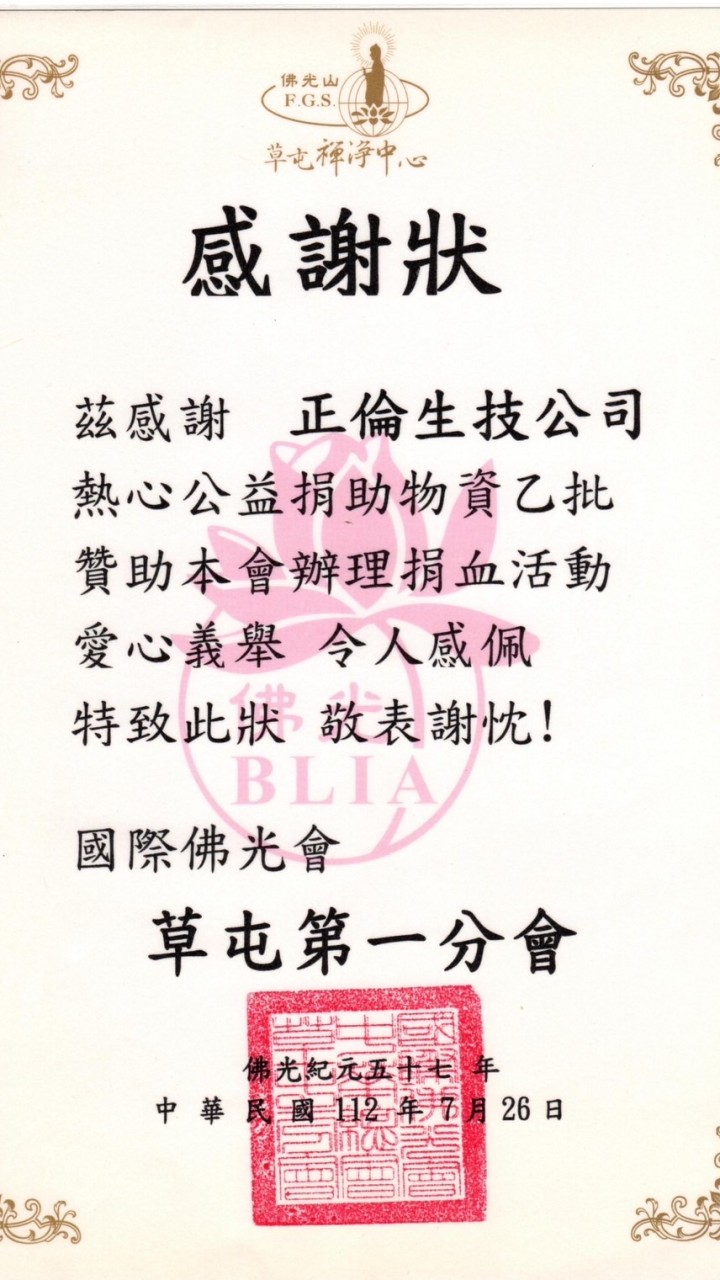 佛光山
F.G.S.
草屯禪淨中心
感謝狀
茲感謝 正倫生技公司
熱心公益捐助物資乙批
贊助本會辦理捐血活動
愛心義舉 令人感佩
特致此狀 敬表謝忱!
佛光
BLIA
國際佛光會
草屯第一分會
佛光紀元五十七 年
中華民國 112 年 7 月 26 日